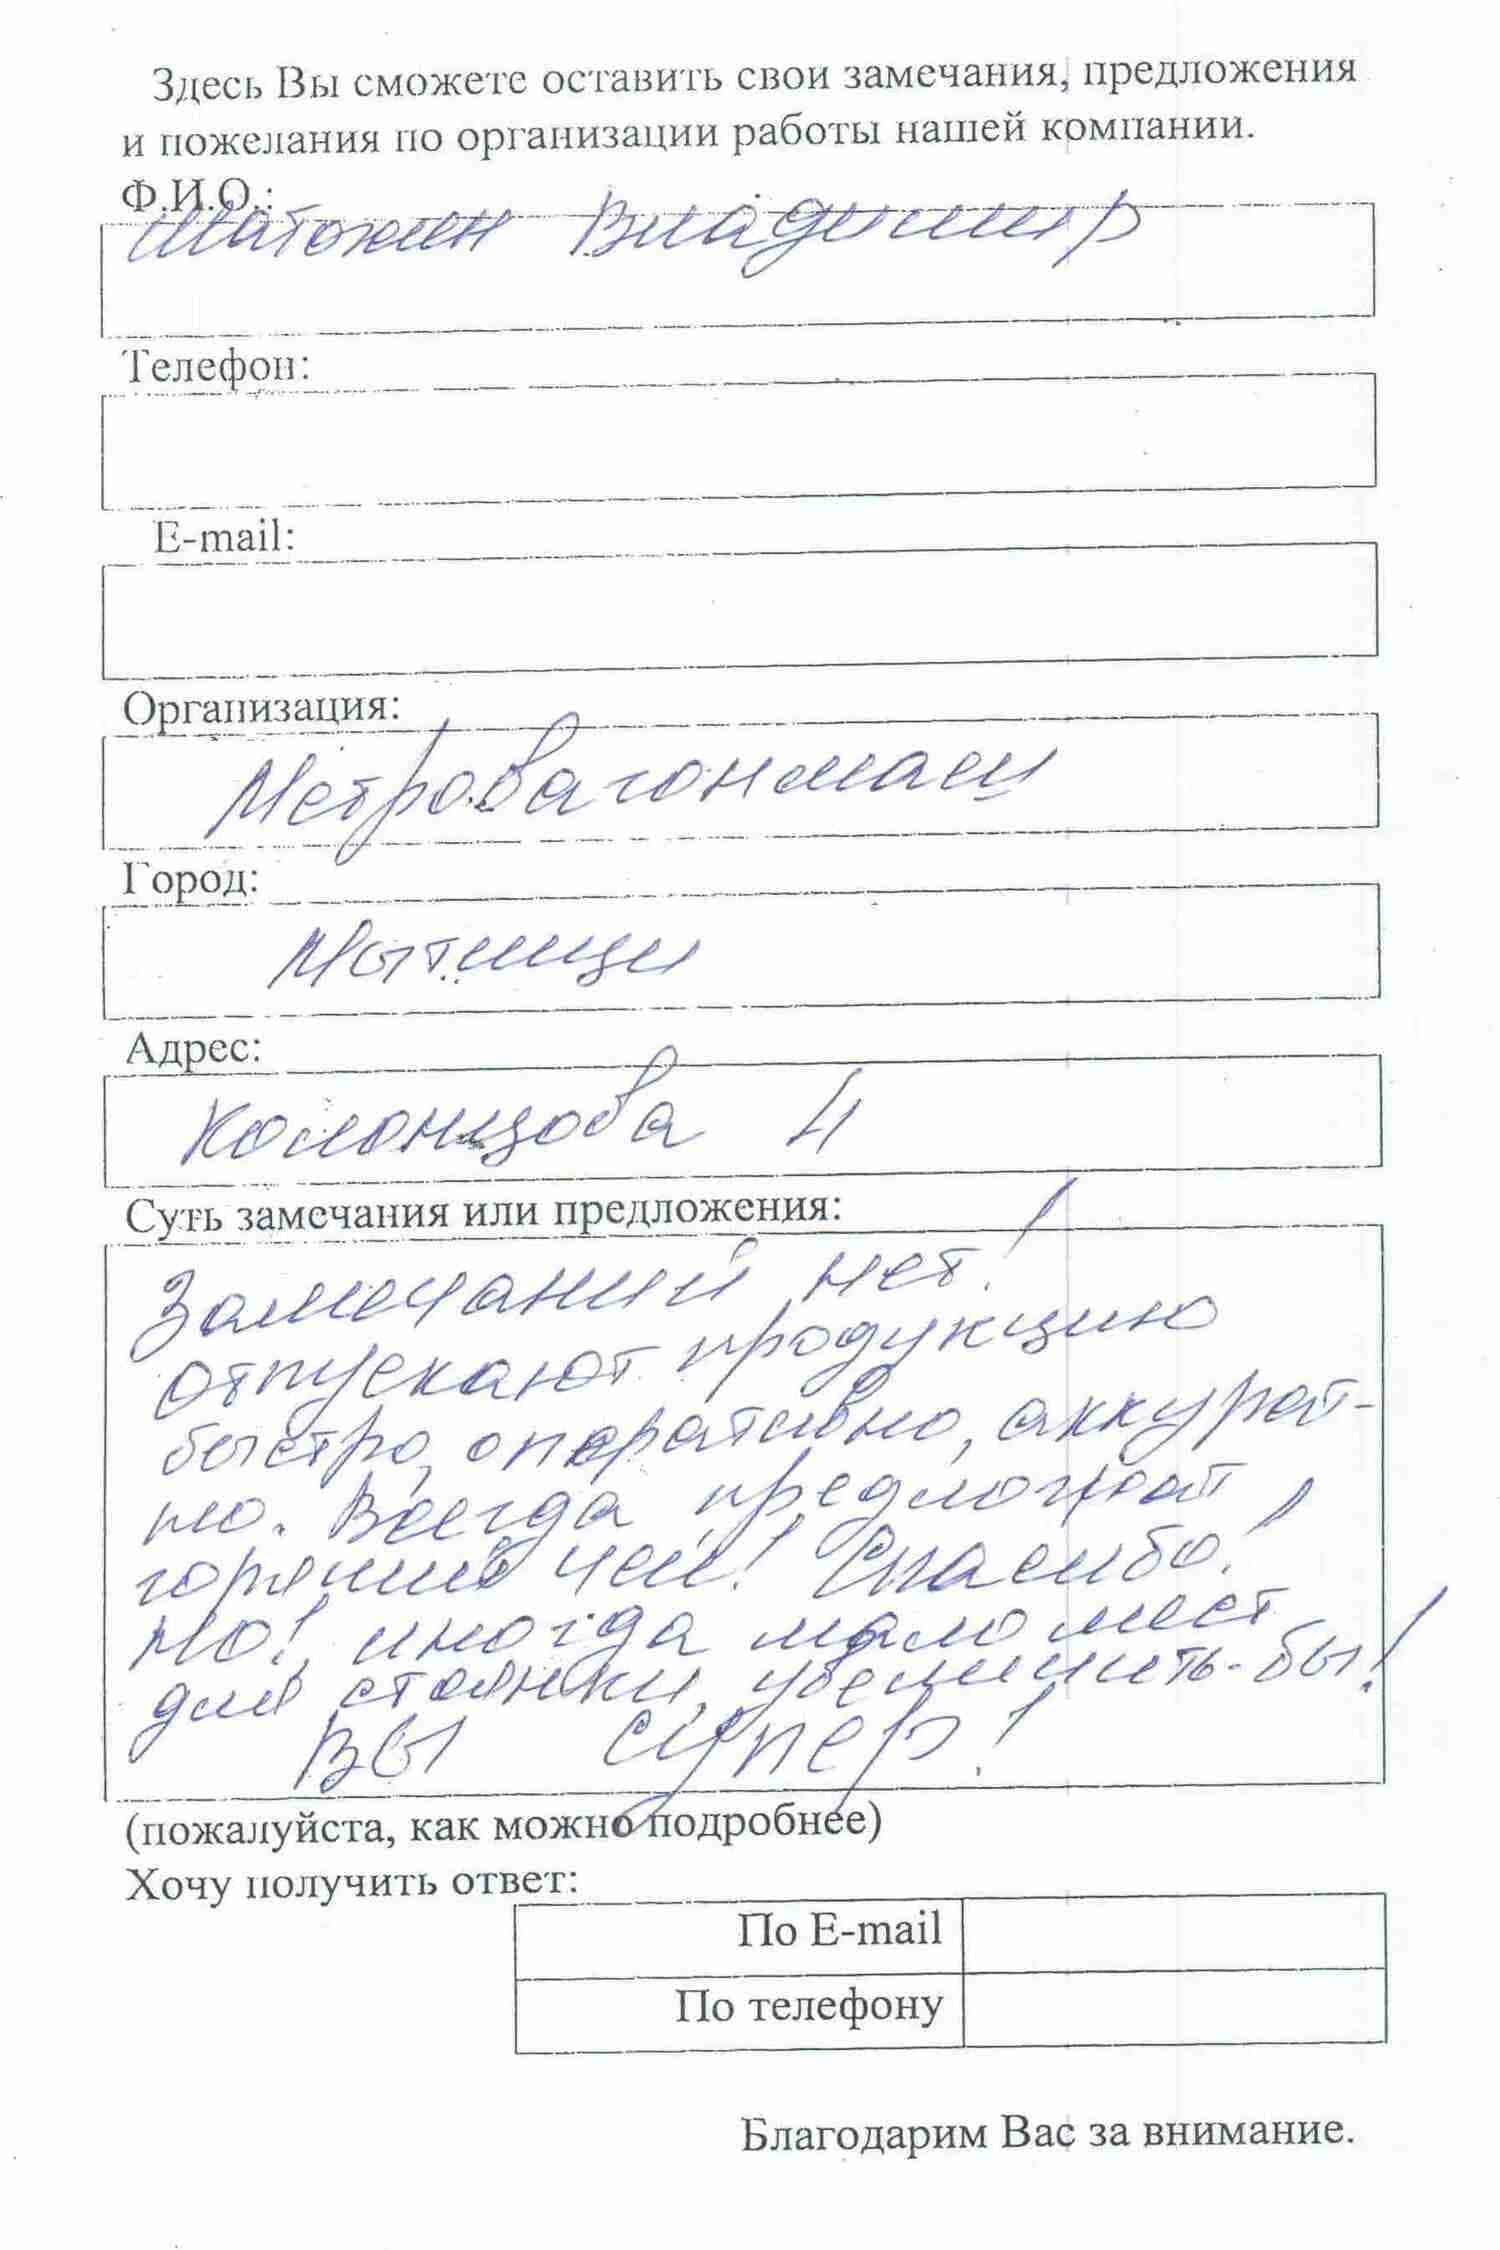 Здесь Вы сможете оставить свои замечания, предложения
и пожелания по организации работы нашей компании.
Ф.И.О.:
Владимир
Телефон:
E-mail:
Организация:
Метровагонмаш
Город:
Мытищи
Адрес:
Колонцова 4
Суть замечания или предложения:
Замечаний нет!
Отпускают продукцию
быстро, оперативно, аккурат-
но. Всегда предложат
горячий чай! Спасибо!
Но! иногда мало мест
для стоянки, увеличить-бы!
Вы супер!
(пожалуйста, как можно подробнее)
Хочу получить ответ:
По E-mail
По телефону
Благодарим Вас за внимание.